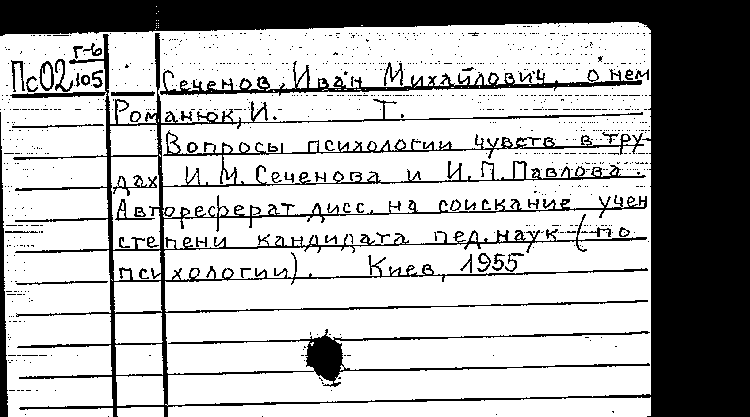 Г-6
Пс02 105 Сеченов, Иван Михайлович, о нем
Романюк, И. Т.
Вопросы психологии чувств в тру-
дах И. М. Сеченова и И. П. Павлова.
Автореферат дисс. на соискание учен
степени кандидата пед. наук (по
психологии). Киев, 1955